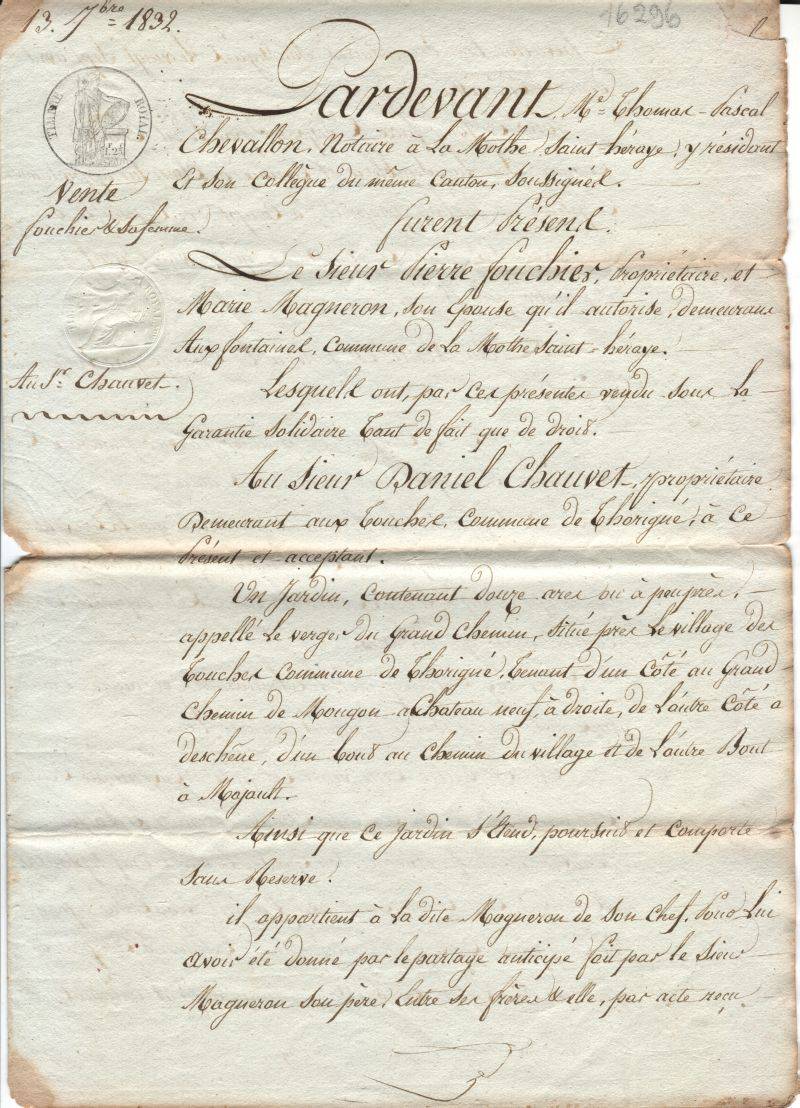 13. 7bre = 1832.
16296
TIMBRE ROYALE
Pardevant Me Thomas-Pascal
Chevallon, Notaire à La Mothe Saint héraye, y résidant
Et son collègue du même Canton, soussignés.
Vente
fouchier & sa femme.
furent Présens.
Le Sieur Pierre Fouchier, Propriétaire, et
Marie Magneron, son épouse qu'il autorise, demeurans
Aux fontaines, commune de la Mothe Saint-héraye.
Au Sr. Chauvet.
Lesquels ont, par ces présentes vendu sous la
Garantie Solidaire Tant de fait que de droit.
Au Sieur Daniel Chauvet, propriétaire
Demeurant aux Touches, commune de Thorigné, à ce
Présent et acceptant.
Un Jardin, contenant douze ares ou à peuprès,
appellé Le verger du Grand chemin, Situé près Le village des
Touches commune de Thorigné, Tenant d'un Côté au Grand
Chemin de Mougon a Chateau neuf, à droite, de L'autre Côté a
deschêne, d'un bout au chemin du village et de L'autre Bout
à Majault.
Ainsi que ce Jardin S'étend, poursuit et comporte
Sans Reserve.
il appartient à La dite Magneron de Son chef, Pour Lui
avoir été donné par le partage anticipé fait par le Sieur
Magneron Son père, Entre Ses frères & elle, par acte reçu